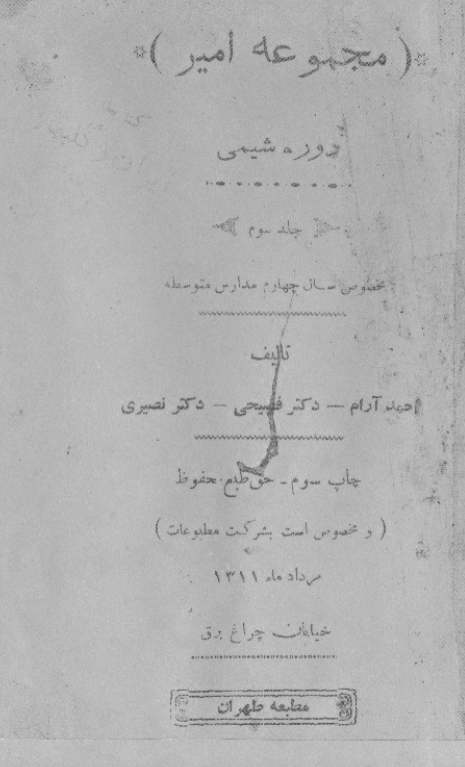 (مجموعه امیر)
دوره شیمی
جلد سوم
مخصوص سال چهارم مدارس متوسطه
تألیف
احمد آرام — دکتر فصیحی — دکتر نصیری
چاپ سوم - حق طبع محفوظ
(و مخصوص است بشرکت مطبوعات)
مرداد ماه ۱۳۱۱
خیابان چراغ برق
مطبعه طهران